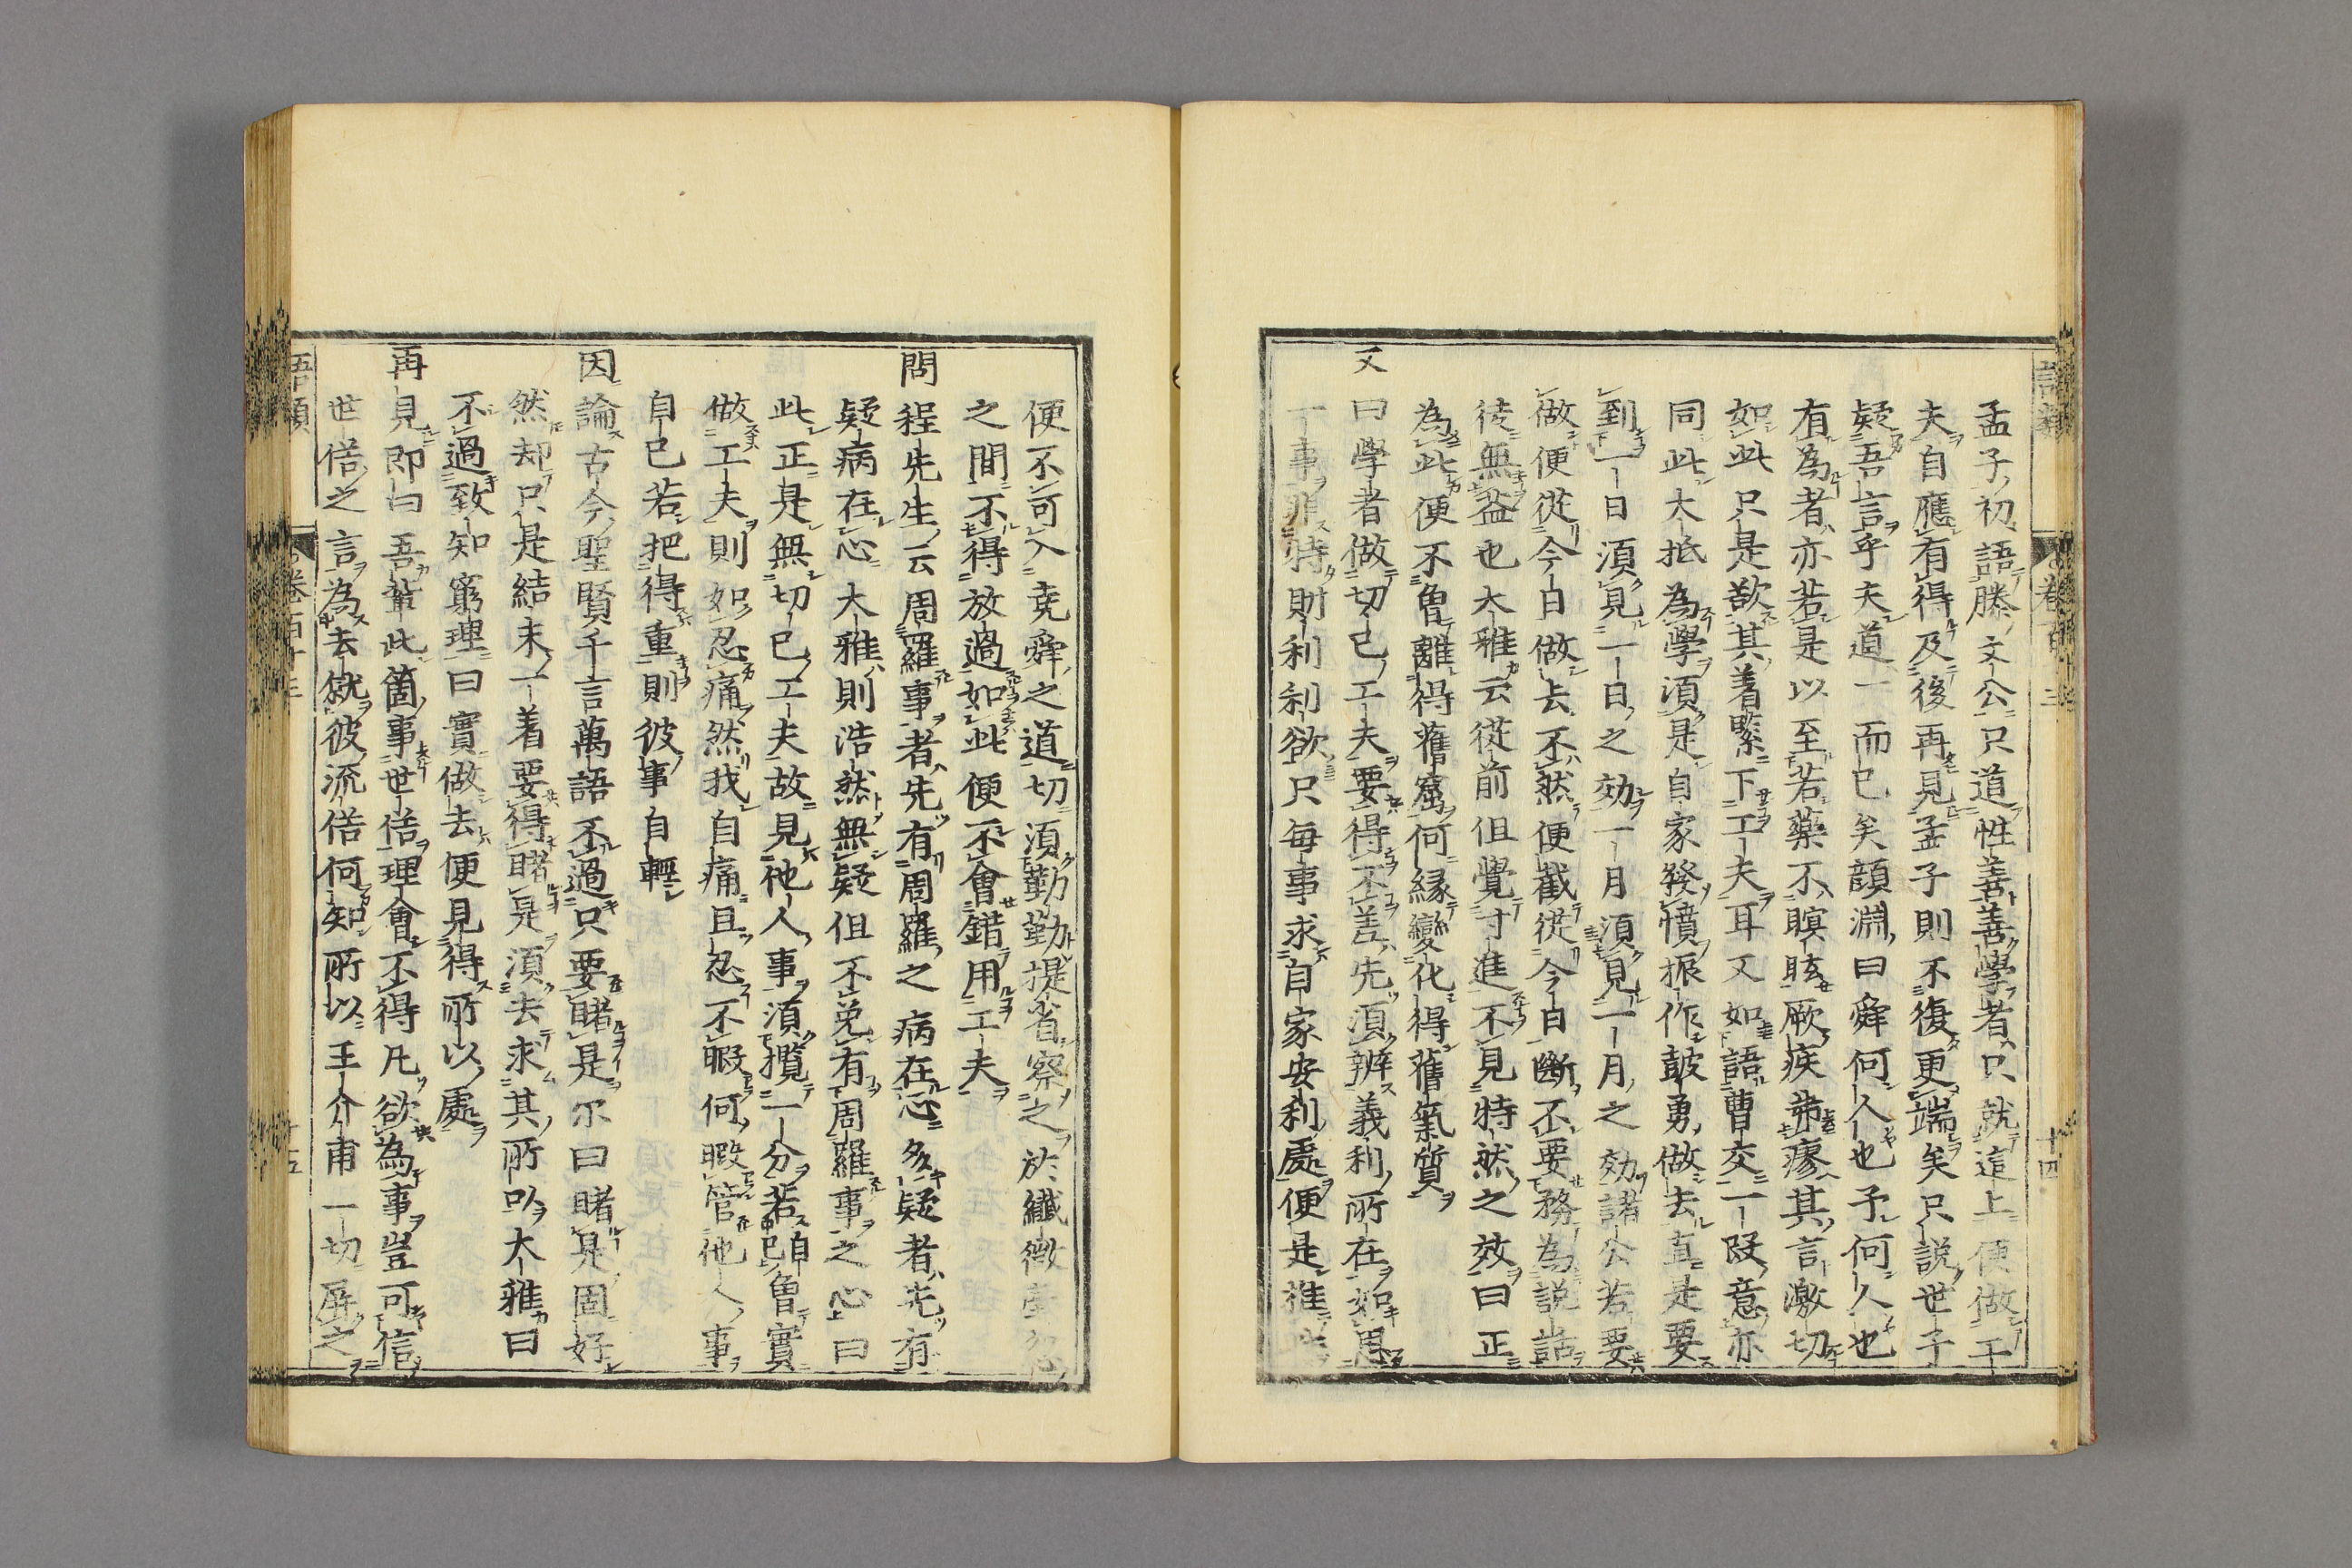 孟子初語滕文公只道性善善學者只就這上便做工
夫自應有得及後再見孟子則不復更端矣只說世子
疑吾言乎夫道一而已矣顔淵曰舜何人也予何人也
有為者亦若是以至若藥不瞑眩厥疾弗瘳其言激切
如此只是欲其着緊下工夫耳又如語曹交一段意亦
同此大抵為學須是自家發憤振作鼓勇做去直是要
到一日須見一日之効一月須見一月之効諸公若要
做便從今日做去不然便截從今日斷不要務為說話
徒無益也大雅云從前但覺寸進不見特然之效曰正
為此便不曽離得舊窟何縁變化得舊氣質
又曰學者做切己工夫要得不善先須辨義利所在如思
一事非特財利利欲只每事求自家安利處便是推此
便不可入堯舜之道切須勤勤提省察之於纖微毫忽
之間不得放過如此便不會錯用工夫
問程先生云周羅事者先有周羅之病在心多疑者先有
疑病在心大雅則浩然無疑但不免有周羅事之心曰
此正是無切己工夫故見他人事須攬一分若自己曽實
做工夫則如忍痛然我自痛且忍不暇何暇管他人事
自己若把得重則彼事自輕
因論古今聖賢千言萬語不過只要睹是尔曰睹是固好
然却只是結末一着要得睹是須去求其所以大雅曰
不過致知窮理曰實做去便見得所以處
再見即曰吾輩此箇事世俗理會不得凡欲為事豈可信
世俗之言為去就彼流俗何知所以王介甫一切屏之
語類
卷百十三
十五
語類
卷百十三
十四